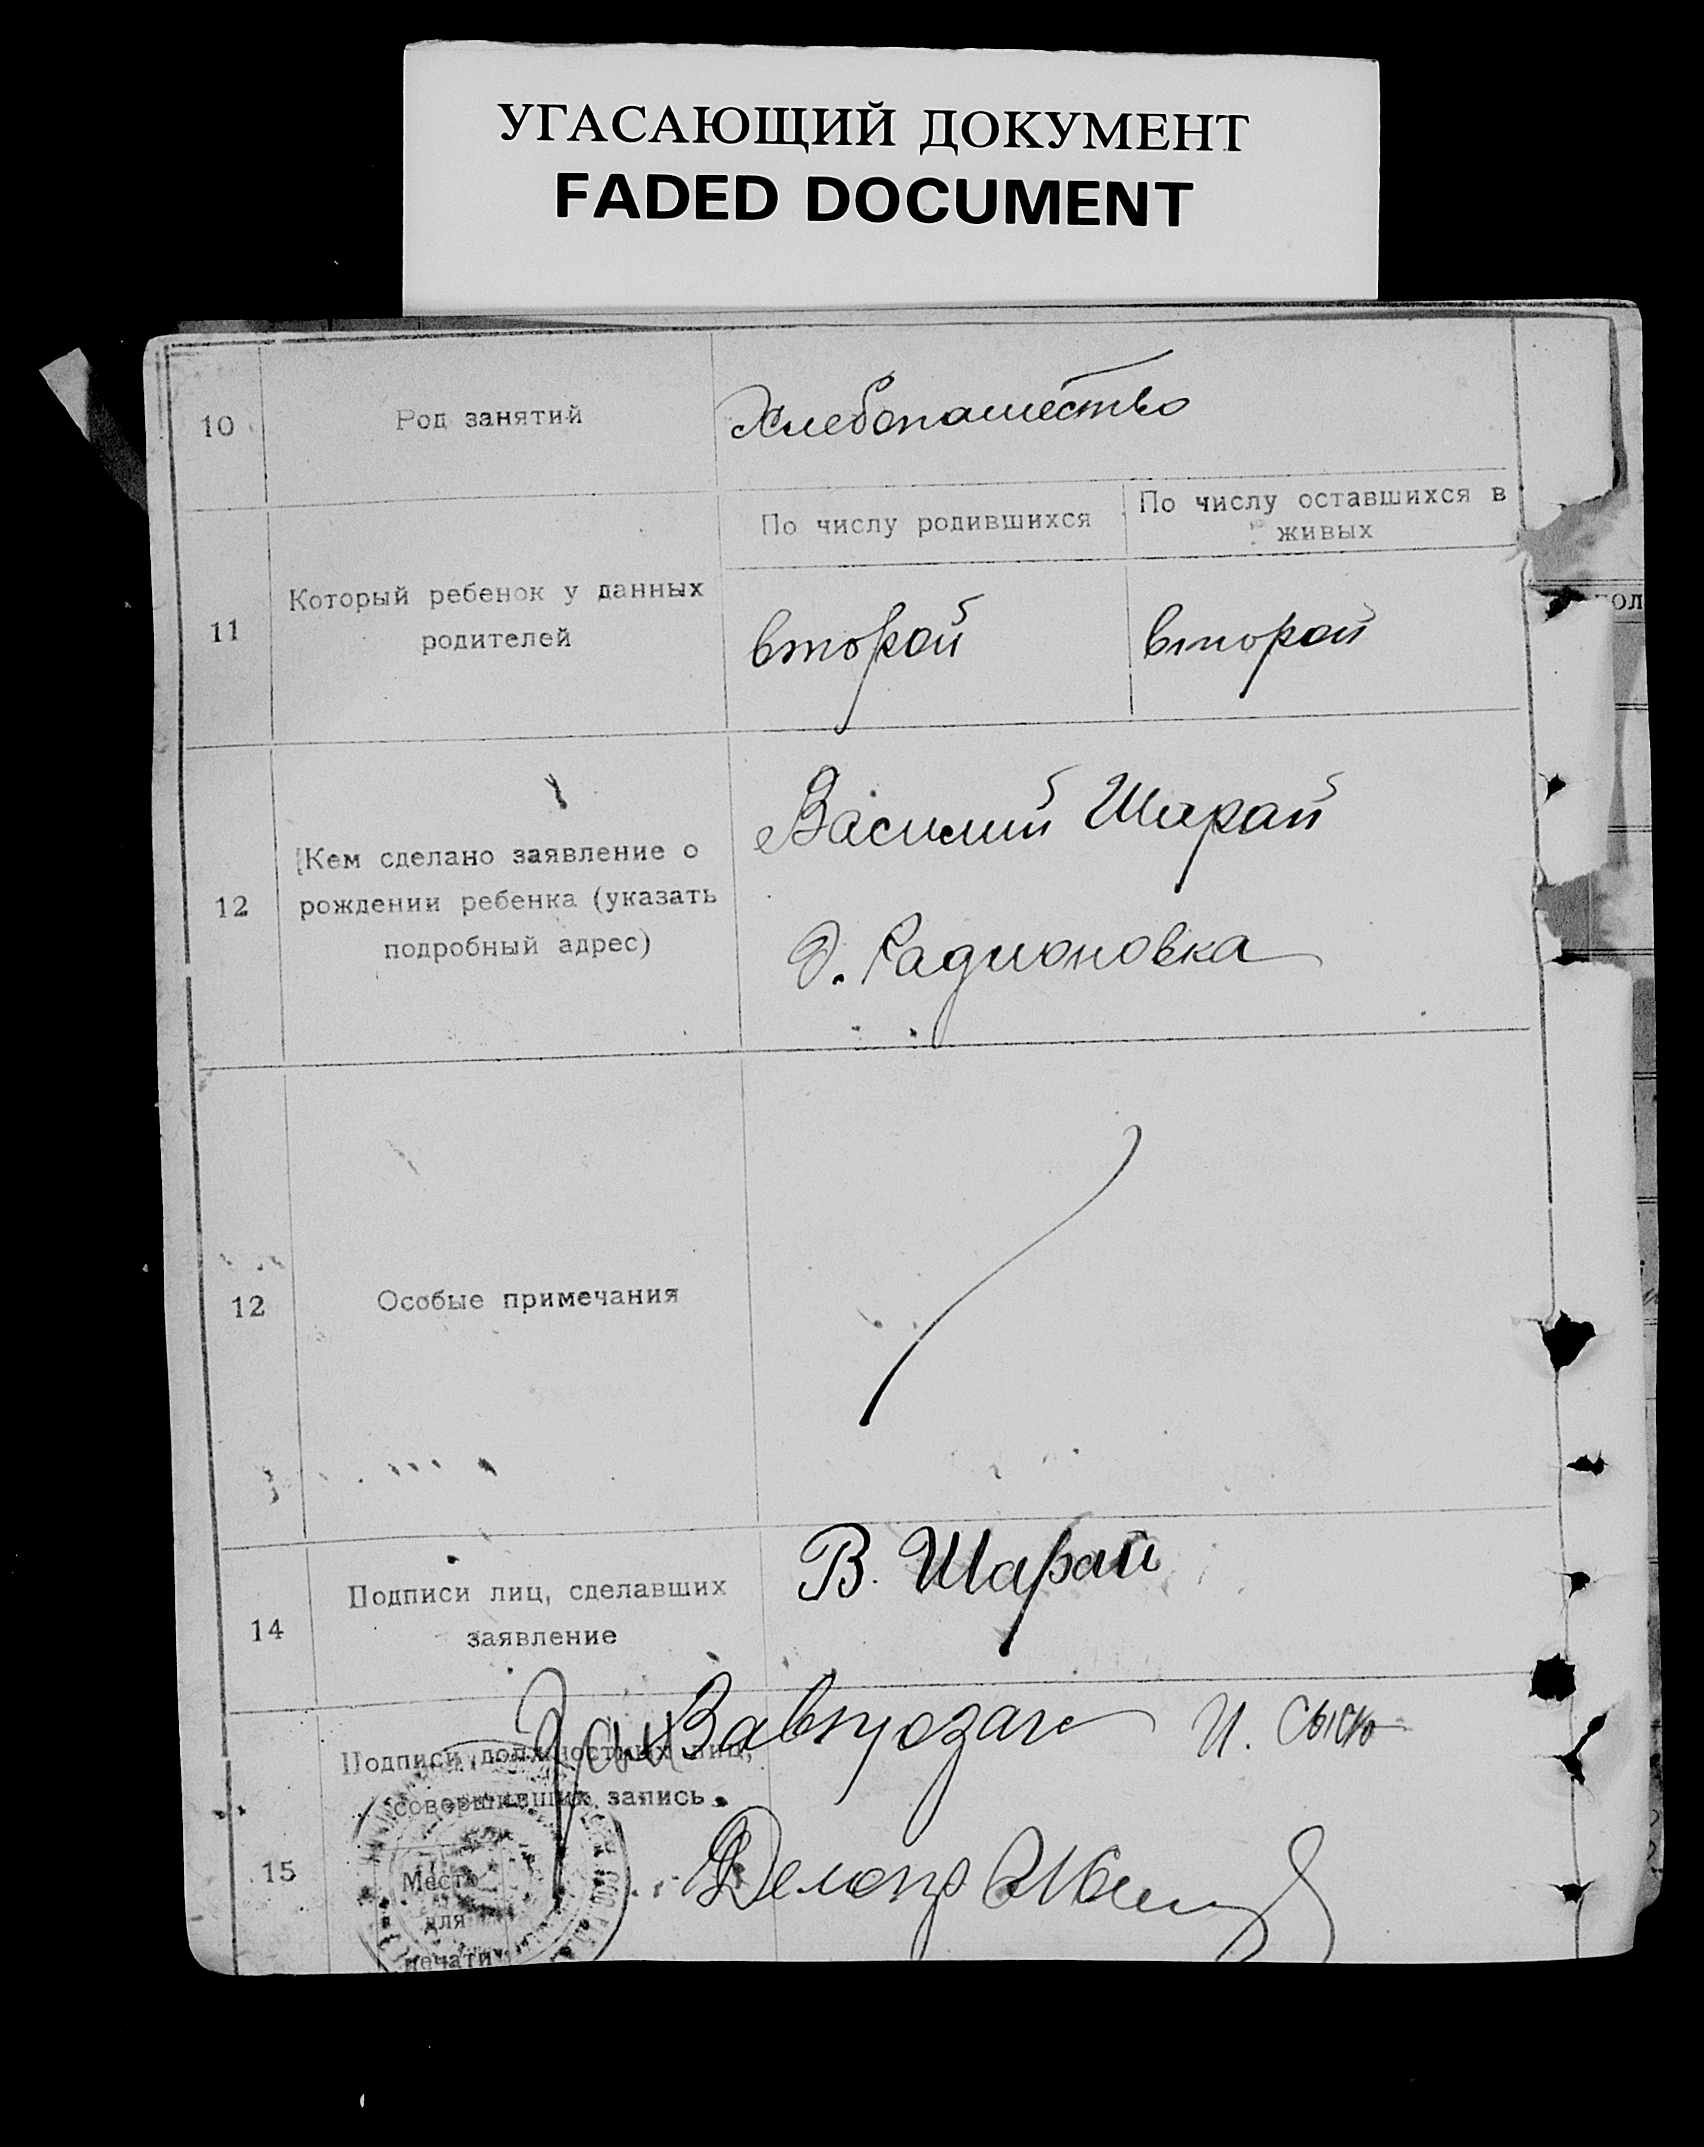 УГАСАЮЩИЙ ДОКУМЕНТ
FADED DOCUMENT
10
Род занятий
Хлебопашество
11
Который ребенок у данных
родителей
По числу родившихся
По числу оставшихся в
живых
второй
второй
12
Кем сделано заявление о
рождении ребенка (указать
подробный адрес)
Василий Шарай
д. Радионовка
12
Особые примечания
14
Подписи лиц, сделавших
заявление
В. Шарай
15
Подписи должностных лиц,
совершивших запись
И.
Место
для
печати
Делопр